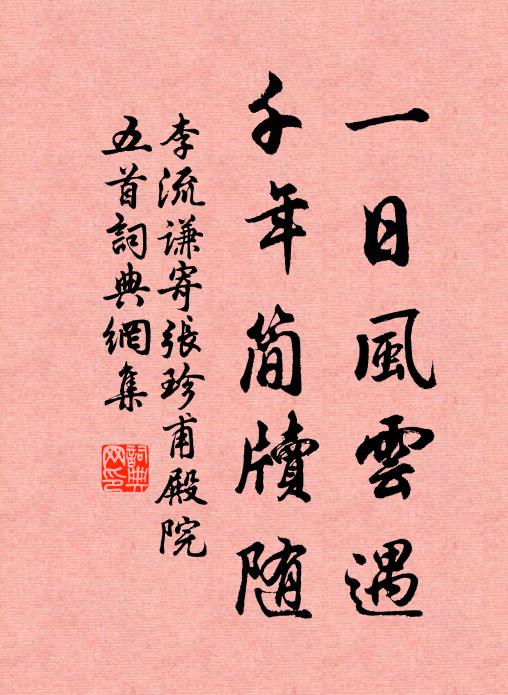 一日風雲遇
千年简牘随
李流谦寄張珍甫殿院
五首詞典網集
詞典网印